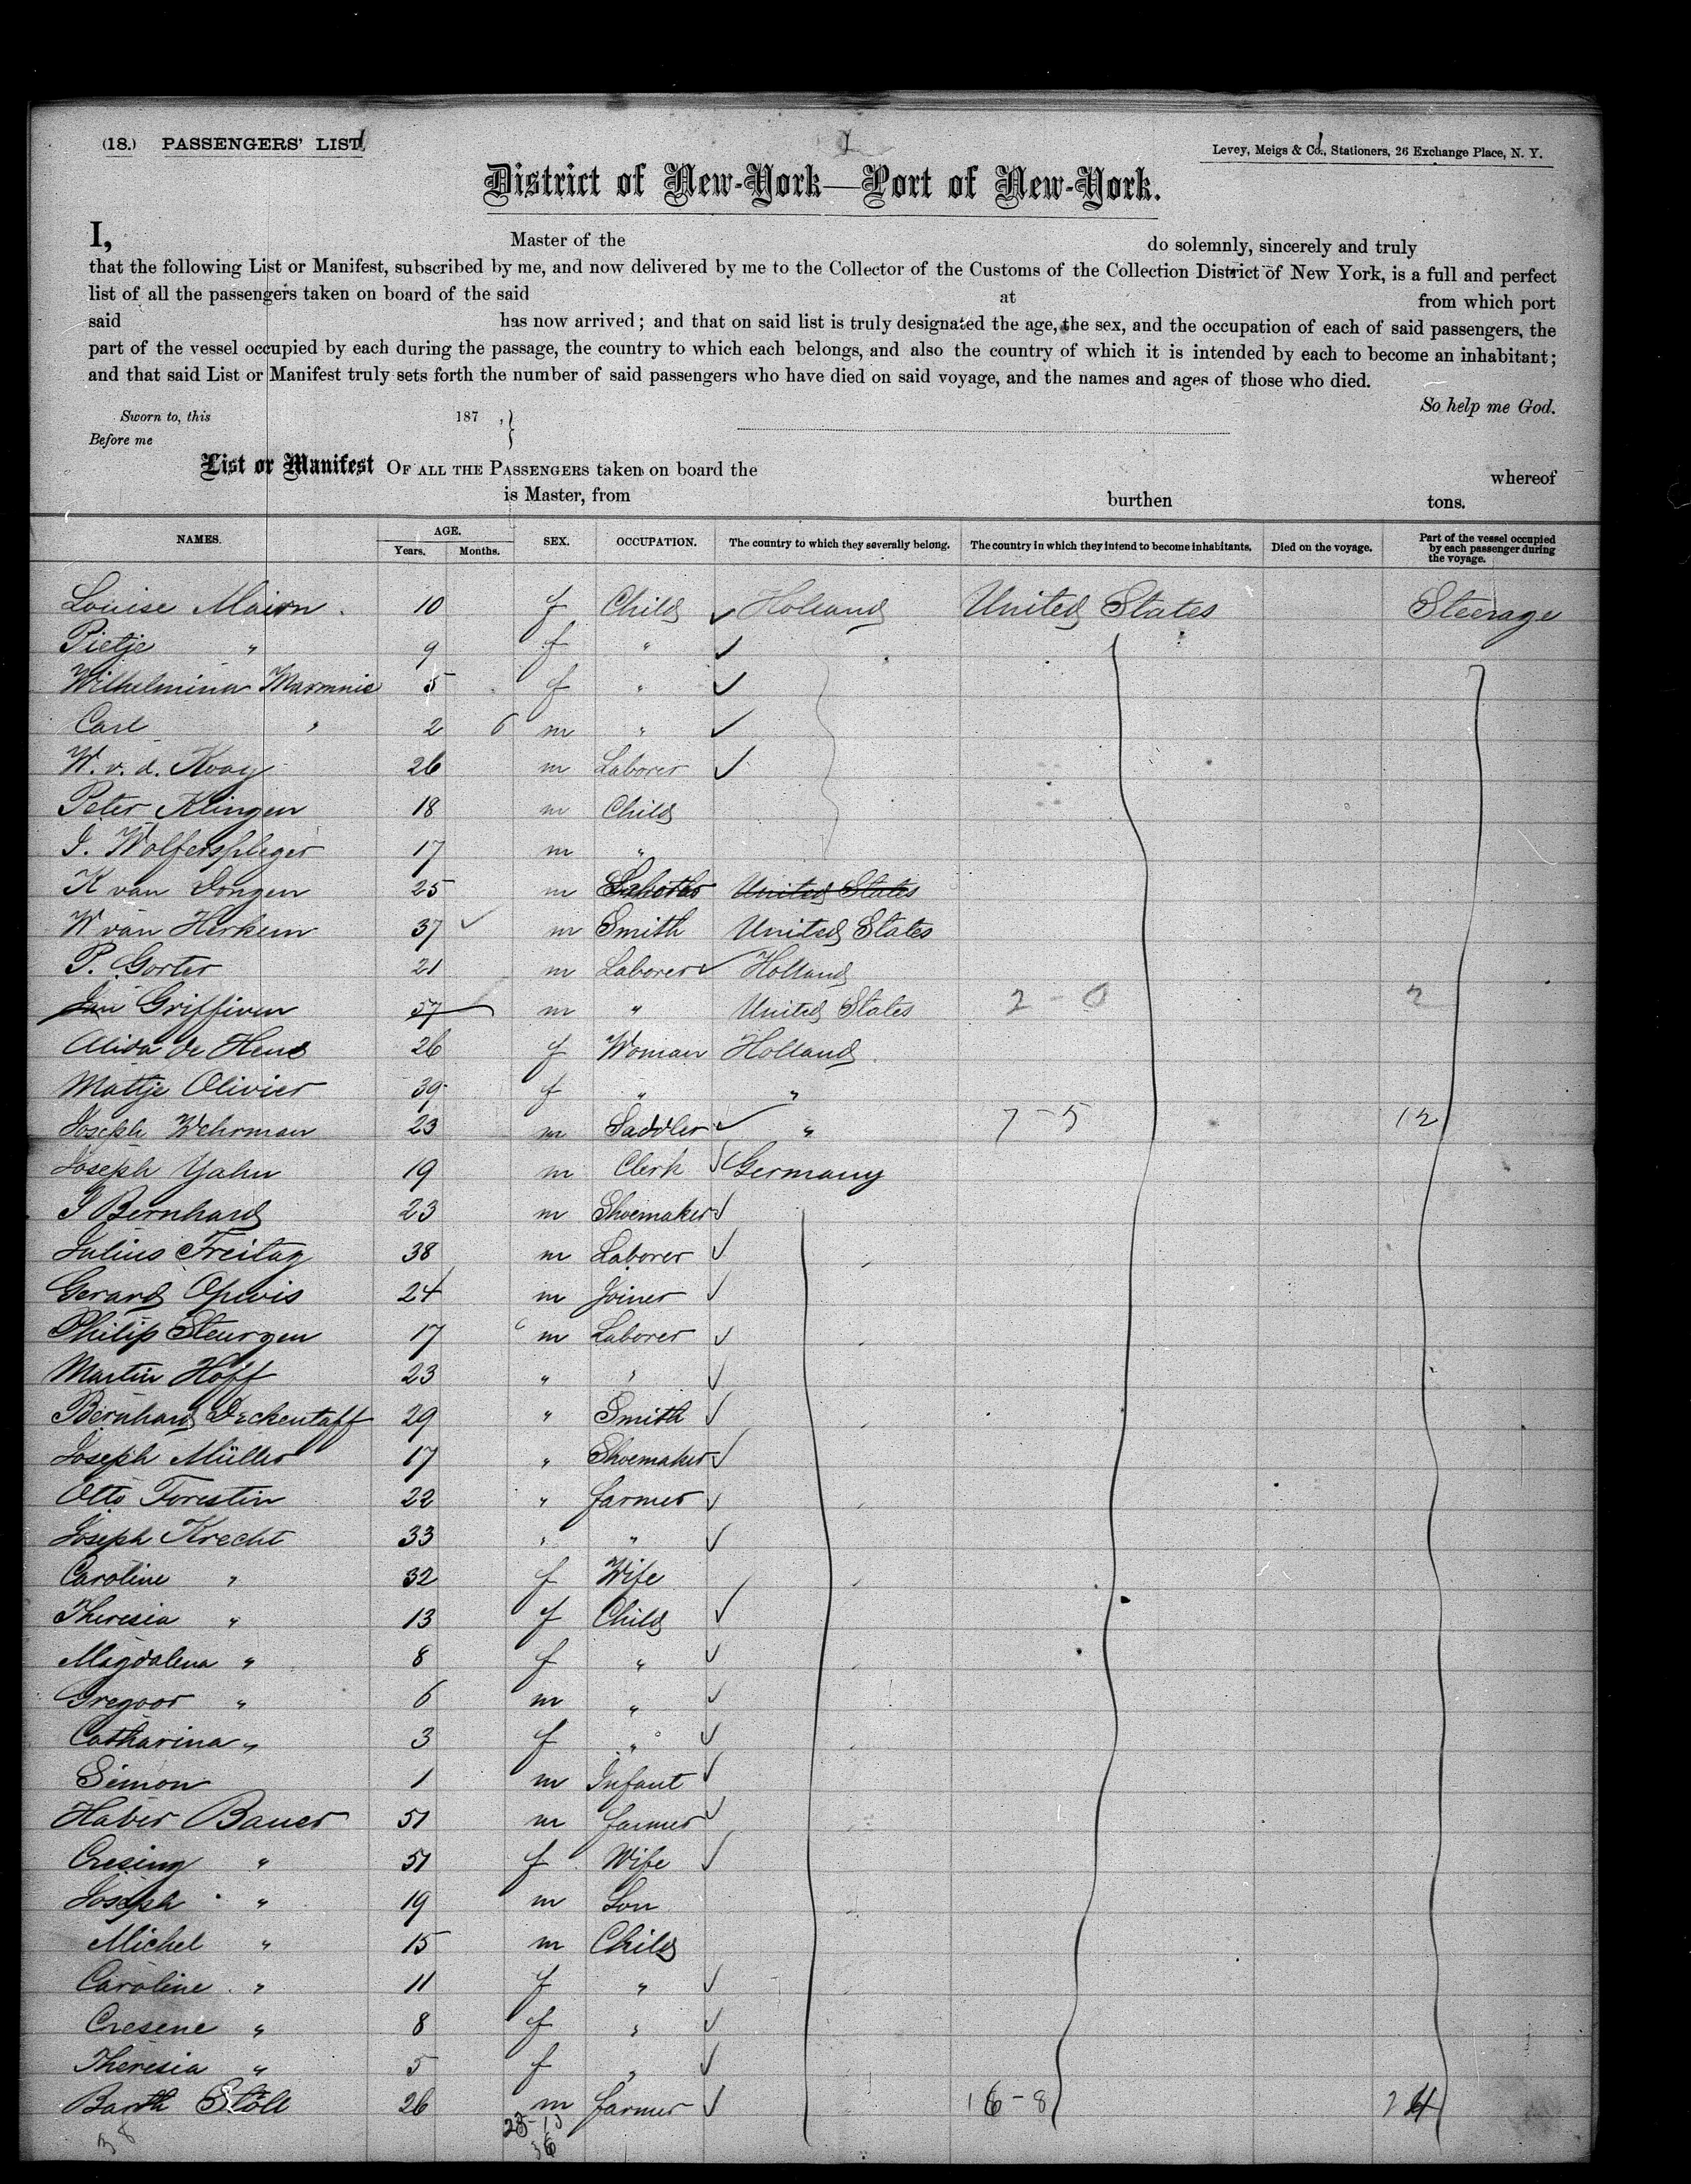 (18.) PASSENGERS' LIST
Levey, Meigs & Co., Stationers, 26 Exchange Place, N. Y.
District of New-York—Port of New-York.
I, Master of the do solemnly, sincerely and truly
that the following List or Manifest, subscribed by me, and now delivered by me to the Collector of the Customs of the Collection District of New York, is a full and perfect
list of all the passengers taken on board of the said at from which port
said has now arrived; and that on said list is truly designated the age, the sex, and the occupation of each of said passengers, the
part of the vessel occupied by each during the passage, the country to which each belongs, and also the country of which it is intended by each to become an inhabitant;
and that said List or Manifest truly sets forth the number of said passengers who have died on said voyage, and the names and ages of those who died.
So help me God.
Sworn to, this 187 ,}
Before me
List or Manifest OF ALL THE PASSENGERS taken on board the whereof
is Master, from burthen tons.
NAMES. AGE. Years. Months. SEX. OCCUPATION. The country to which they severally belong. The country in which they intend to become inhabitants. Died on the voyage. Part of the vessel occupied by each passenger during the voyage.
Louise 10 f Child ✓ Holland United States Steerage
Pietje " 9 f " ✓
Wilhelmina 5 f " ✓
Carl " 2 6 m " ✓
W. v. d. Kooy 26 m Laborer ✓
Peter Klingen 18 m Child
17 m "
K van Dongen 25 m United States
W van Herkum 37 ✓ m Smith United States
P. Gorter 21 m Laborer ✓ Holland
Jan 57 m " United States 2 - 0 2
Alida de 26 f Woman Holland
Mattje Olivier 39 f " "
Joseph Wehrman 23 m Saddler ✓ " 7 - 5 12
Joseph Yahn 19 m Clerk ✓ Germany
J Bernhard 23 m Shoemaker ✓
Julius Freitag 38 m Laborer ✓
Gerard Opwis 24 m Joiner ✓
Philip Steurgen 17 m Laborer ✓
Martin Hoff 23 " " ✓
Bernhard 29 " Smith ✓
Joseph Müller 17 " Shoemaker ✓
Otto Forestin 22 " farmer ✓
Joseph Krecht 33 " " ✓
Caroline " 32 f Wife
Theresia " 13 f Child ✓
Magdalena " 8 f " ✓
Gregoor " 6 m " ✓
Catharina " 3 f " ✓
Simon 1 m Infant ✓
Haber Bauer 51 m farmer ✓
Cresing " 51 f Wife ✓
Joseph " 19 m Son
Michel " 15 m Child
Caroline " 11 f " ✓
Cresene " 8 f " ✓
Theresia " 5 f " ✓
Barth Stöll 26 m farmer ✓ 16 - 8 24
38